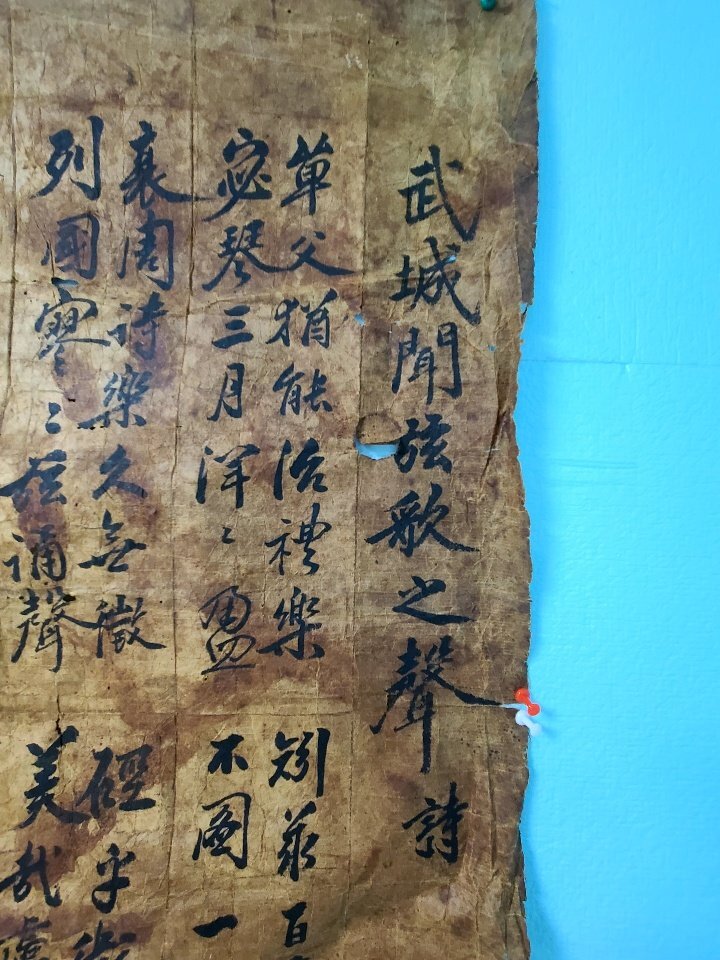 武城聞弦歌之聲 詩
單父猶能治禮樂 矧茲百
宓琴三月洋〻盈 不圖一
衰周詩樂久無徵 硜乎
列國寥〻弦誦聲 美哉